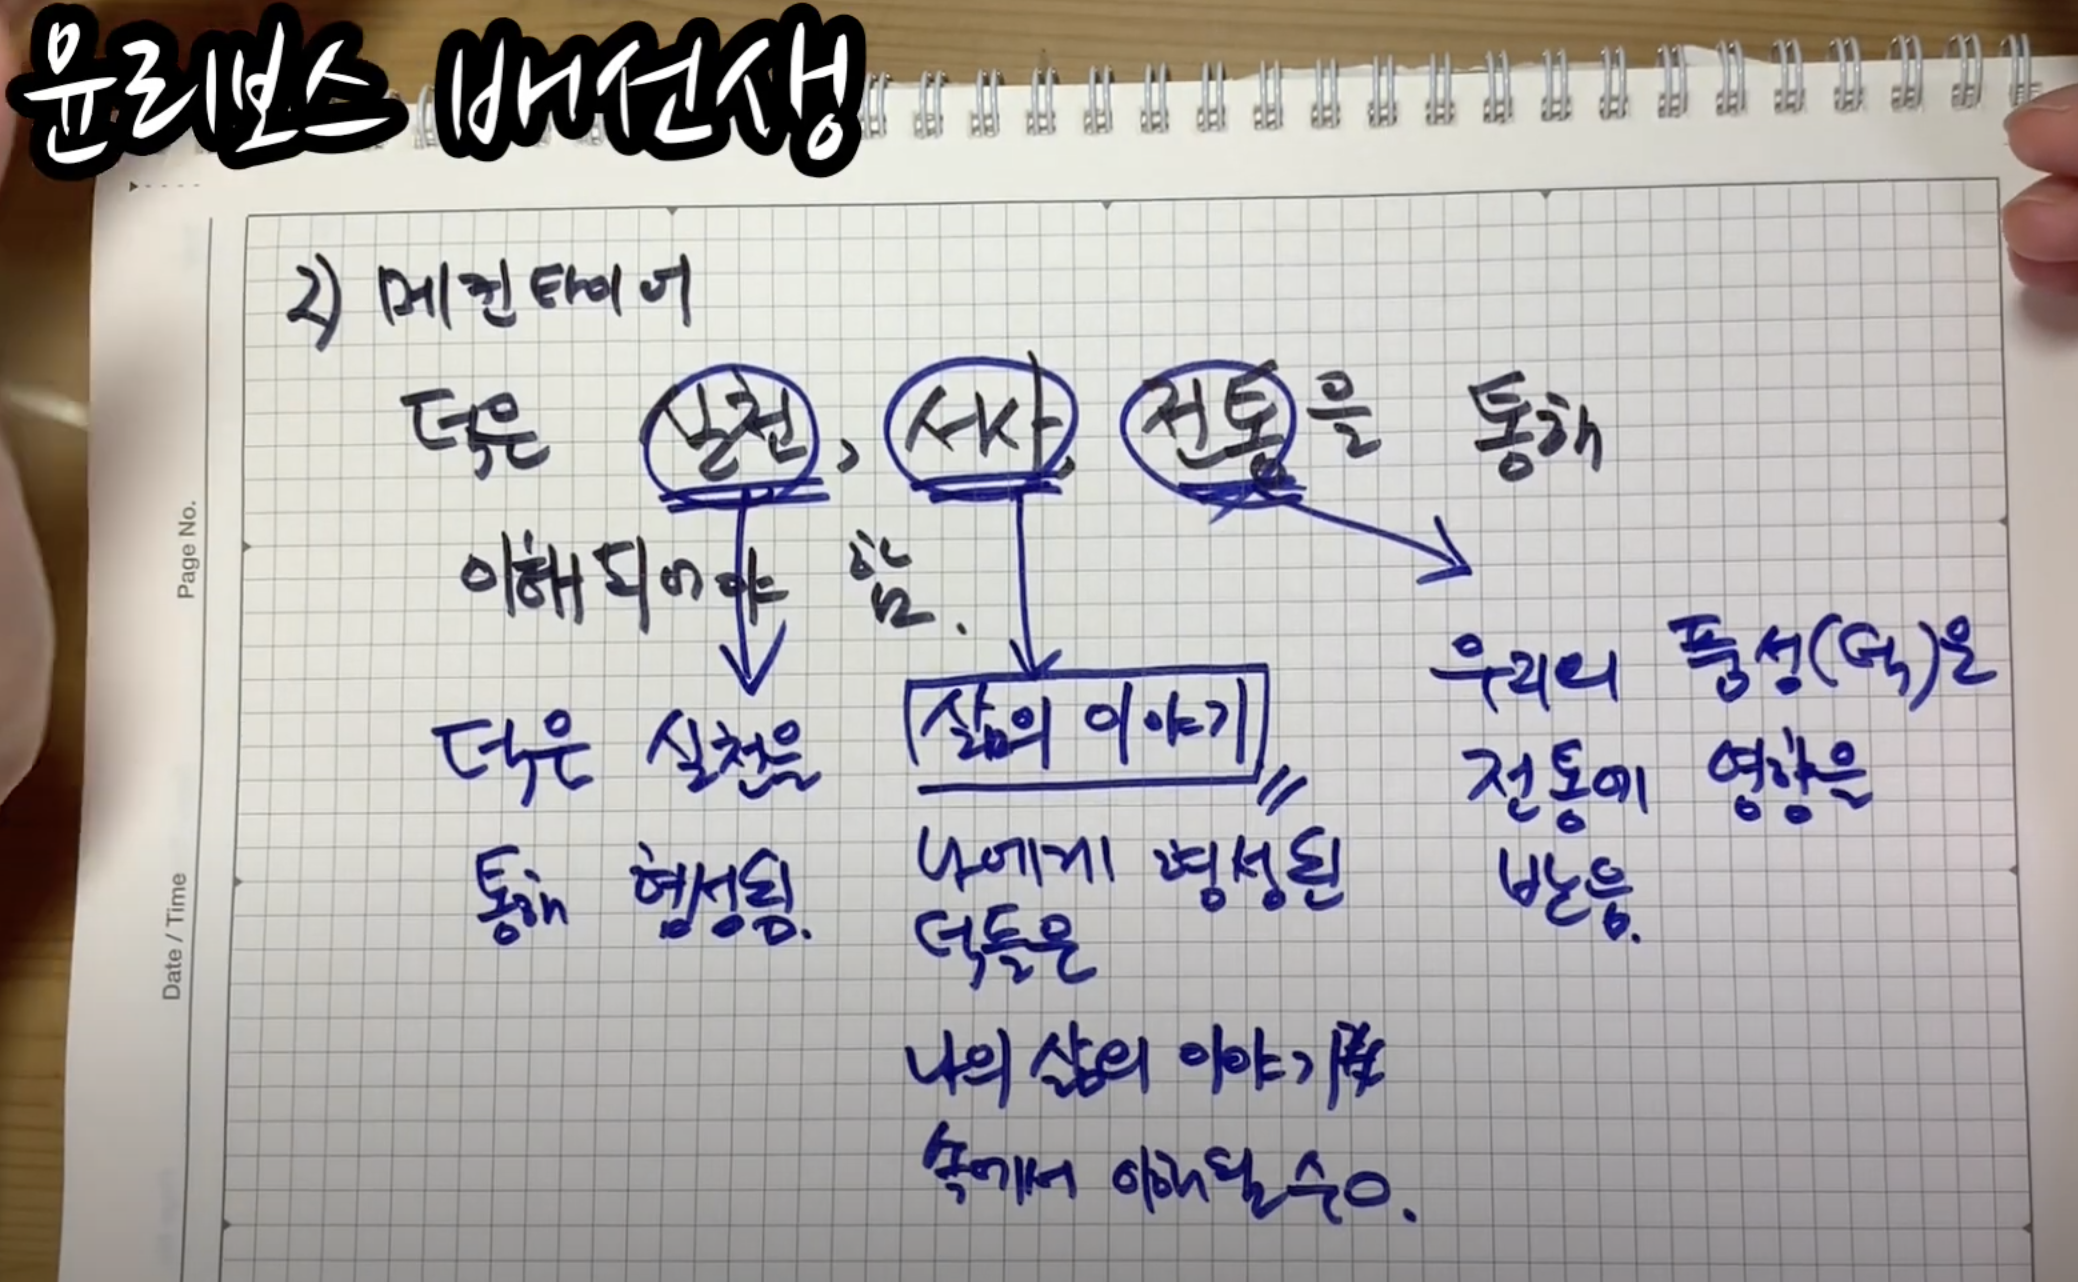 윤리보스 배선생
2) 메킨타이어
덕은 실천, 서사, 전통을 통해
이해되어야 함.
덕은 실천을
통해 형성됨.
삶의 이야기
나에게 형성된
덕들은
나의 삶의 이야기
속에서 이해될 수 O.
우리의 품성(덕)은
전통에 영향을
받음.
Page No.
Date / Time